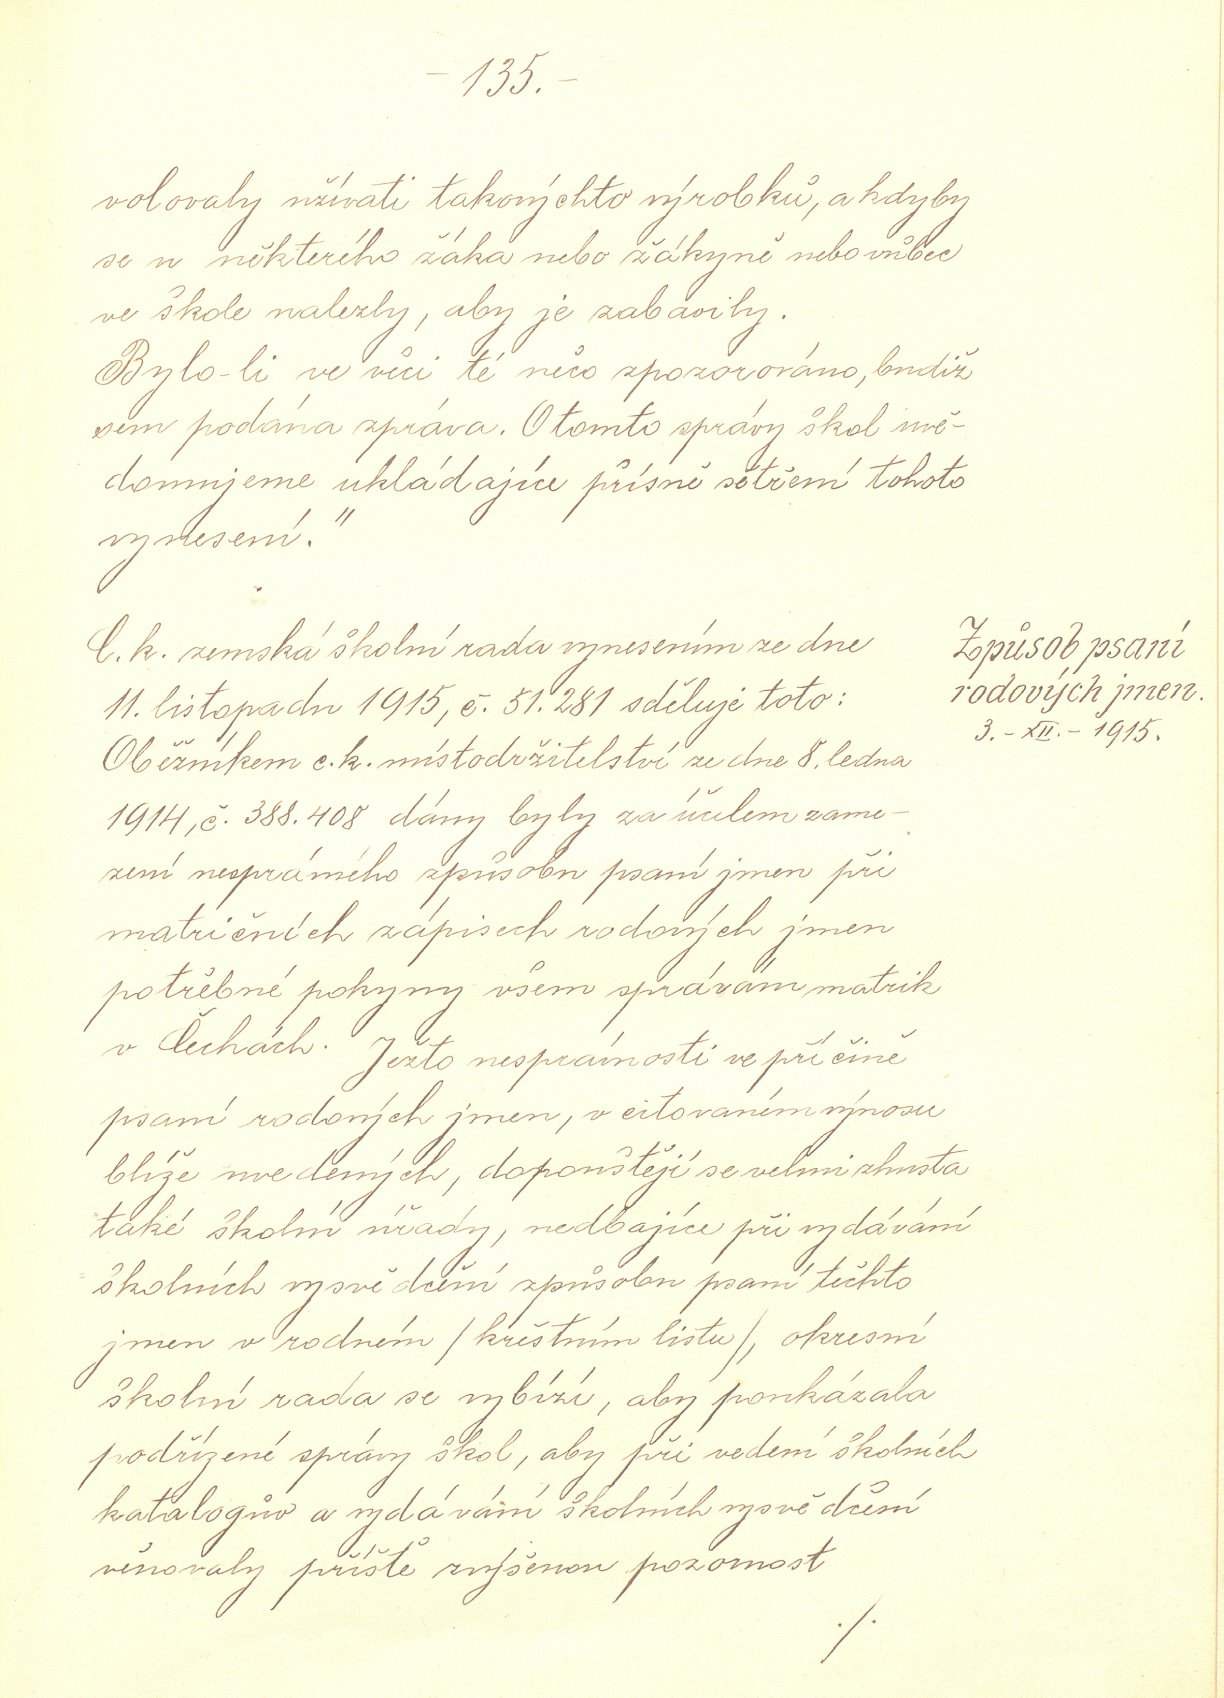 - 135. -
volovaly užívati takovýchto výrobků, a kdyby
se u některého žáka nebo žákyně nebo vůbec
ve škole nalezly, aby je zabavily.
Bylo-li ve věci té něco zpozorováno, budiž
sem podána zpráva. O tomto správy škol uvě-
domujeme ukládajíce přísně šetření tohoto
vynesení."
C. k. zemská školní rada vynesením ze dne
11. listopadu 1915, č. 51.281 sděluje toto:
Způsob psaní
rodových jmen.
3. - XII. - 1915.
Oběžníkem c. k. místodržitelství ze dne 8. ledna
1914, č. 388.408 dány byly za účelem zame-
zení nesprávného způsobu psaní jmen při
matričních zápisech rodových jmen
potřebné pokyny všem správám matrik
v Čechách. Ježto nesprávnosti ve příčině
psaní rodových jmen, v citovaném výnosu
blíže uvedených, dopouštějí se velmi zhusta
také školní úřady, nedbajíce při vydávání
školních vysvědčení způsobu psaní těchto
jmen v rodném /křestním listu/, okresní
školní rada se vybízí, aby poukázala
podřízené správy škol, aby při vedení školních
katalogův a vydávání školních vysvědčení
věnovaly příště zvýšenou pozornost
./.